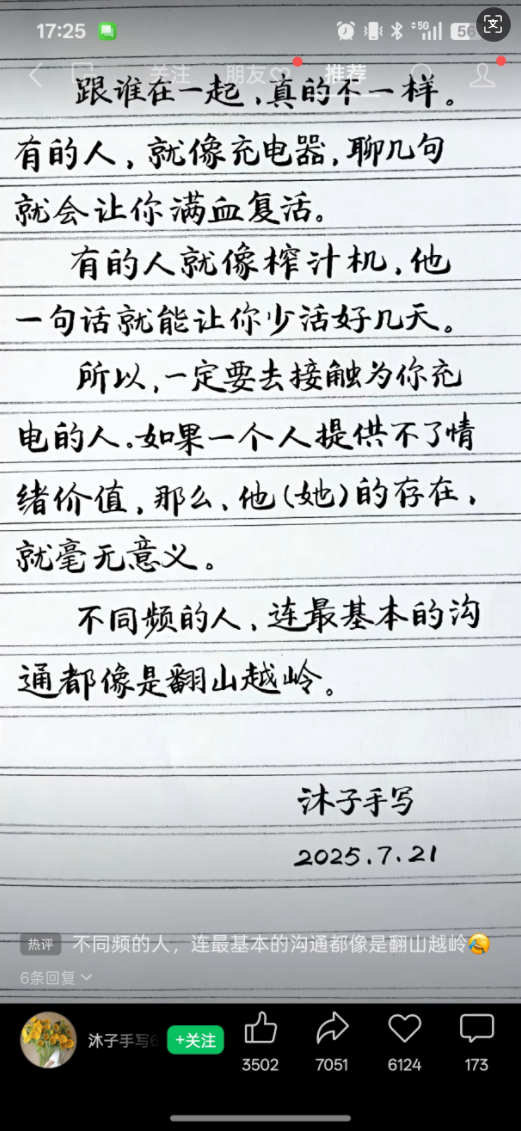 17:25
5G
56
关注
朋友
推荐
跟谁在一起,真的不一样。
有的人,就像充电器,聊几句
就会让你满血复活。
有的人就像榨汁机,他
一句话就能让你少活好几天。
所以,一定要去接触为你充
电的人。如果一个人提供不了情
绪价值,那么,他(她)的存在,
就毫无意义。
不同频的人,连最基本的沟
通都像是翻山越岭。
沐子手写
2025.7.21
热评 不同频的人，连最基本的沟通都像是翻山越岭😂
6条回复
沐子手写6
+关注
3502
7051
6124
173